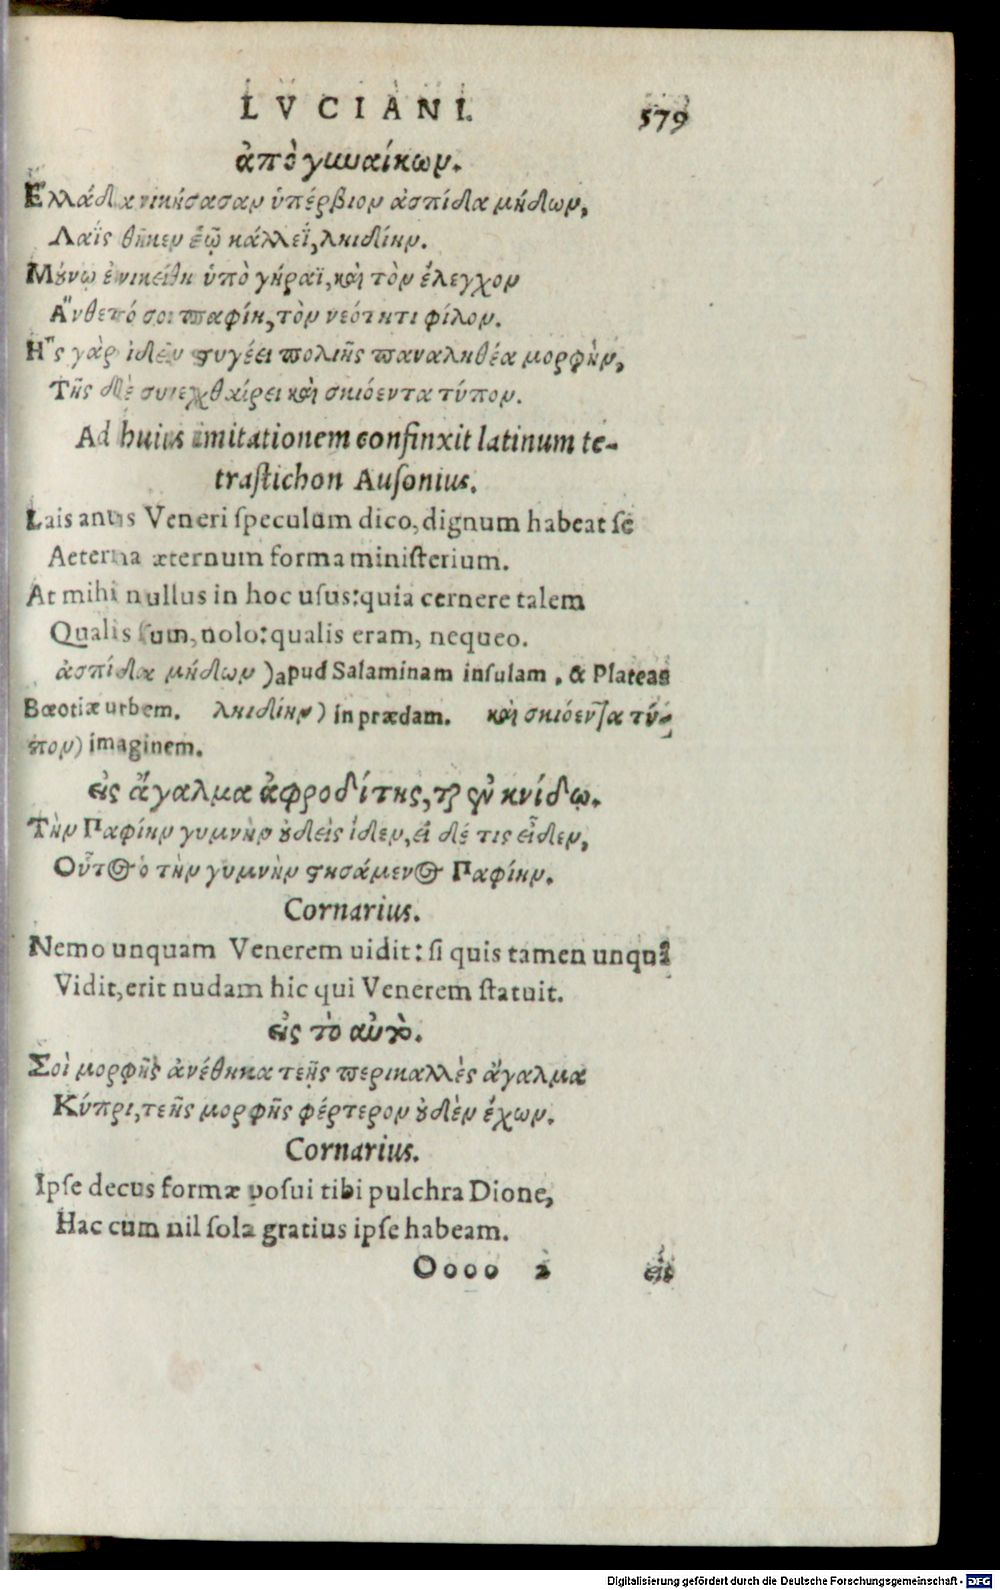 LVCIANI. 579
ἀπὸ γυναίκων.
Ἑλλάδα νικήσασαν ὑπέρβιον ἀσπίδα μήδων,
Λαῒς θῆκεν ἑῷ κάλλεϊ, ληιδίην.
Μούνῳ ἐνικήθη ὑπὸ γήραϊ, καὶ τὸν ἔλεγχον
Ἄνθετό σοι παφίη, τὸν νεότητι φίλον.
Ἧς γὰρ ἰδεῖν στυγέει πολιῆς παναληθέα μορφὴν,
Τῆς δὲ συνεχθαίρει καὶ σκιόεντα τύπον.
Ad huius imitationem confinxit latinum te-
traſtichon Auſonius.
Lais anus Veneri ſpeculum dico, dignum habeat ſe
Aeterna æternum forma miniſterium.
At mihi nullus in hoc uſus: quia cernere talem
Qualis ſum, nolo: qualis eram, nequeo.
ἀσπίδα μήδων) apud Salaminam inſulam, & Plateas
Bœotiæ urbem. ληιδίην) in prædam. καὶ σκιόεντα τύ-
πον) imaginem.
εἰς ἄγαλμα ἀφροδίτης, τὸ ἐν κνίδῳ.
Τὴν Παφίην γυμνὴν οὐδεὶς ἴδεν, εἰ δέ τις εἶδεν,
Οὗτος ὁ τὴν γυμνὴν στησάμενος Παφίην.
Cornarius.
Nemo unquam Venerem uidit: ſi quis tamen unquã
Vidit, erit nudam hic qui Venerem ſtatuit.
εἰς τὸ αὐτό.
Σοὶ μορφῆς ἀνέθηκα τεῆς περικαλλὲς ἄγαλμα
Κύπρι, τεῆς μορφῆς φέρτερον οὐδὲν ἔχων.
Cornarius.
Ipſe decus formæ poſui tibi pulchra Dione,
Hac cum nil ſola gratius ipſe habeam.
Oooo 2 εἰς
Digitalisierung gefördert durch die Deutsche Forschungsgemeinschaft - DFG